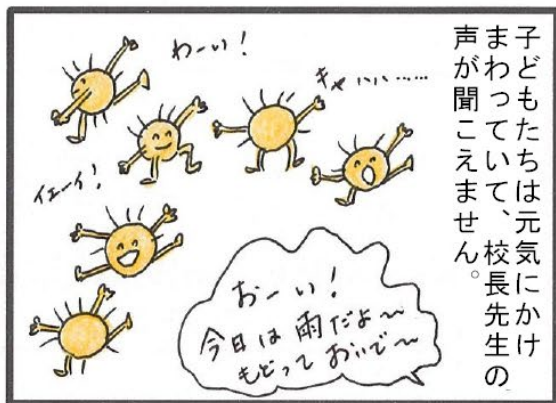 子どもたちは元気にかけ
まわっていて、校長先生の
声が聞こえません。
わーい！
キャハハ……
イェーイ！
おーい！
今日は雨だよ〜
もどっておいで〜